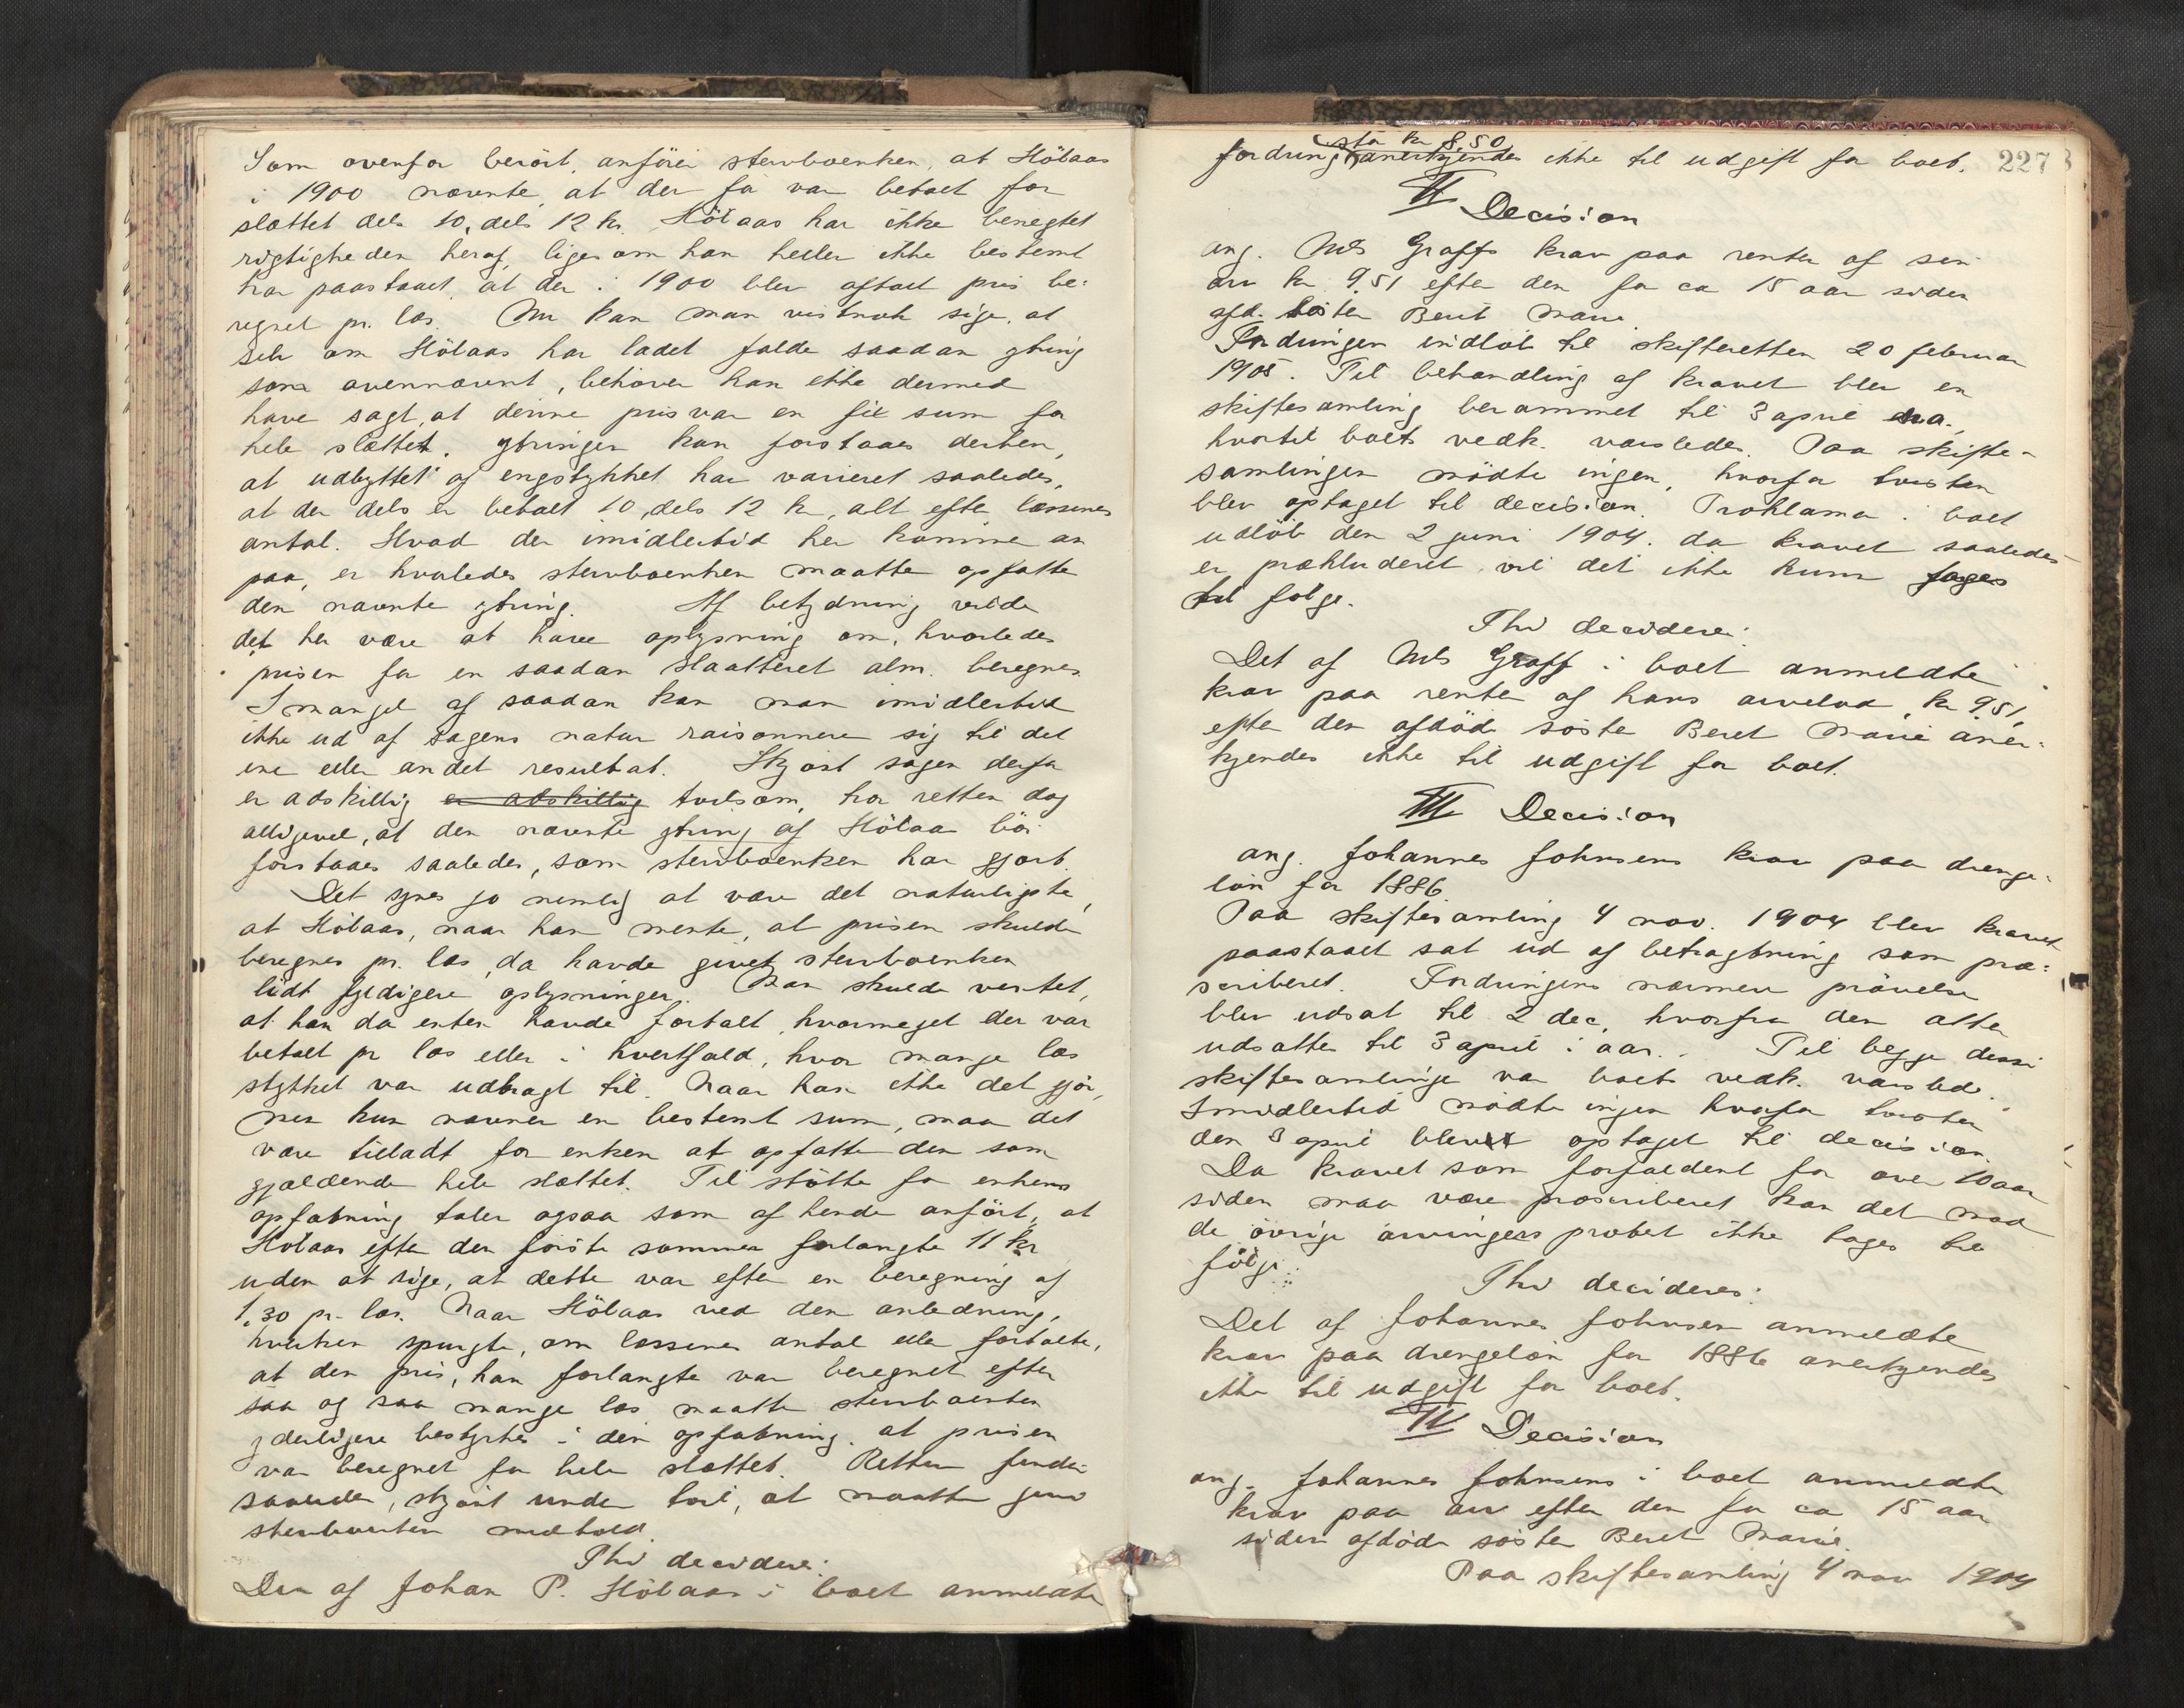 Som ovenfor berört, anförer stervboenken, at Hölaas
i 1900 nævnte, at der för var betalt for
slættet dels 10, dels 12 kr. Hölaas har ikke benegtet
rigtigheden heraf, ligesom han heller ikke bestemt
har paastaaet, at der i 1900 blev aftalt pris be-
regnet pr. læs. Nu kan man vistnok sige, at
selv om Hölaas har ladet falde saadan ytring
som ovennævnt, behöver han ikke dermed
have sagt, at denne pris var en fix sum for
hele slættet. Ytringen kan forstaaes derhen,
at udbyttet af engstykket har varieret saaledes,
at der dels er betalt 10, dels 12 kr, alt efter læssenes
antal. Hvad der imidlertid her kommer an
paa, er hvorledes stervboenken maatte opfatte
den nævnte ytring. Af betydning vilde
det her være at have oplysning om, hvorledes
prisen for en saadan slaatteret alm. beregnes.
I mangel af saadan kan man imidlertid
ikke ud af sagens natur raisonnere sig til det
ene eller andet resultat. Skjönt sagen derfor
er adskillig er adskillig tvilsom, tror retten dog
alligevel, at den nævnte ytring af Hölaas bör
forstaaes saaledes, som stervboenken har gjort.
Det synes jo nemlig at være det naturligste,
at Hölaas, naar han mente, at prisen skulde
beregnes pr. læs, da havde givet stervboenken
lidt fyldigere oplysninger. Man skulde ventet,
at han da enten havde fortalt, hvormeget der var
betalt pr læs eller i hvertfald, hvor mange læs
stykket var udbragt til. Naar han ikke det gjör,
men kun nævner en bestemt sum, maa det
være tilladt for enken at opfatte den som
gjældende hele slættet. Til stötte for enkens
opfatning taler ogsaa som af hende anfört, at
Hölaas efter den förste sommer forlangte 11 kr
uden at sige, at dette var efter en beregning af
1,30 pr. læs. Naar Hölaas ved den anledning,
hverken spurgte, om læssenes antal eller fortalte,
at den pris, han forlangte var beregnet efter
saa og saa mange læs maatte stervboenken
yderligere bestyrkes i den opfatning, at prisen
var beregnet for hele slættet. Retten finder
saaledes, skjönt under tvil, at maatte give
stervboenken medhold.
Thi decideres:
Den af Johan P. Hölaas i boet anmeldte
227
stor kr 8,50
fordring anerkjendes ikke til udgift for boet.
II Decision
ang. Nils Graffs krav paa renter af sin
arv kr 9,51 efter den for ca 15 aar siden
afd. söster Berit Marie.
Fordringen indlöb til skifteretten 20 februar
1905. Til behandling af kravet blev en
skiftesamling berammet til 3 april d.a.,
hvortil boets vedk. varsledes. Paa skifte-
samlingen mödte ingen, hvorfor tvisten
blev optaget til decision. Proklama i boet
udlöb den 2 juni 1904. da kravet saaledes
er prækluderet, vil det ikke kunne tages
til følge.
Thi decideres:
Det af Nils Graff i boet anmeldte
krav paa renter af hans arvelod, kr 9,51,
efter den afdöde söster Beret Marie aner-
kjendes ikke til udgift for boet.
III Decision
ang. Johannes Johnsens krav paa drenge-
lön for 1886
Paa skiftesamling 4 nov. 1904 blev kravet
paastaaet sat ud af betragtning som præ-
scriberet. Fordringens nærmere prövelse
blev udsat til 2 dec, hvorfra den atter
udsattes til 3 april i aar. Til begge disse
skiftesamlinger var boets vedk. varslede.
Imidlertid mödte ingen hvorfor tvisten
den 3 april blev optaget til decision.
Da kravet som forfaldent for over 10 aar
siden maa være præscriberet kan det mod
de övrige arvingers protest ikke tages til
fölge.
Thi decideres:
Det af Johannes Johnsen anmeldte
krav paa drengelön for 1886 anerkjendes
ikke til udgift for boet.
IV Decision
ang. Johannes Johnsens i boet anmeldte
krav paa arv efter den for ca 15 aar
siden afdöde söster Beret Marie.
Paa skiftesamling 4 nov 1904